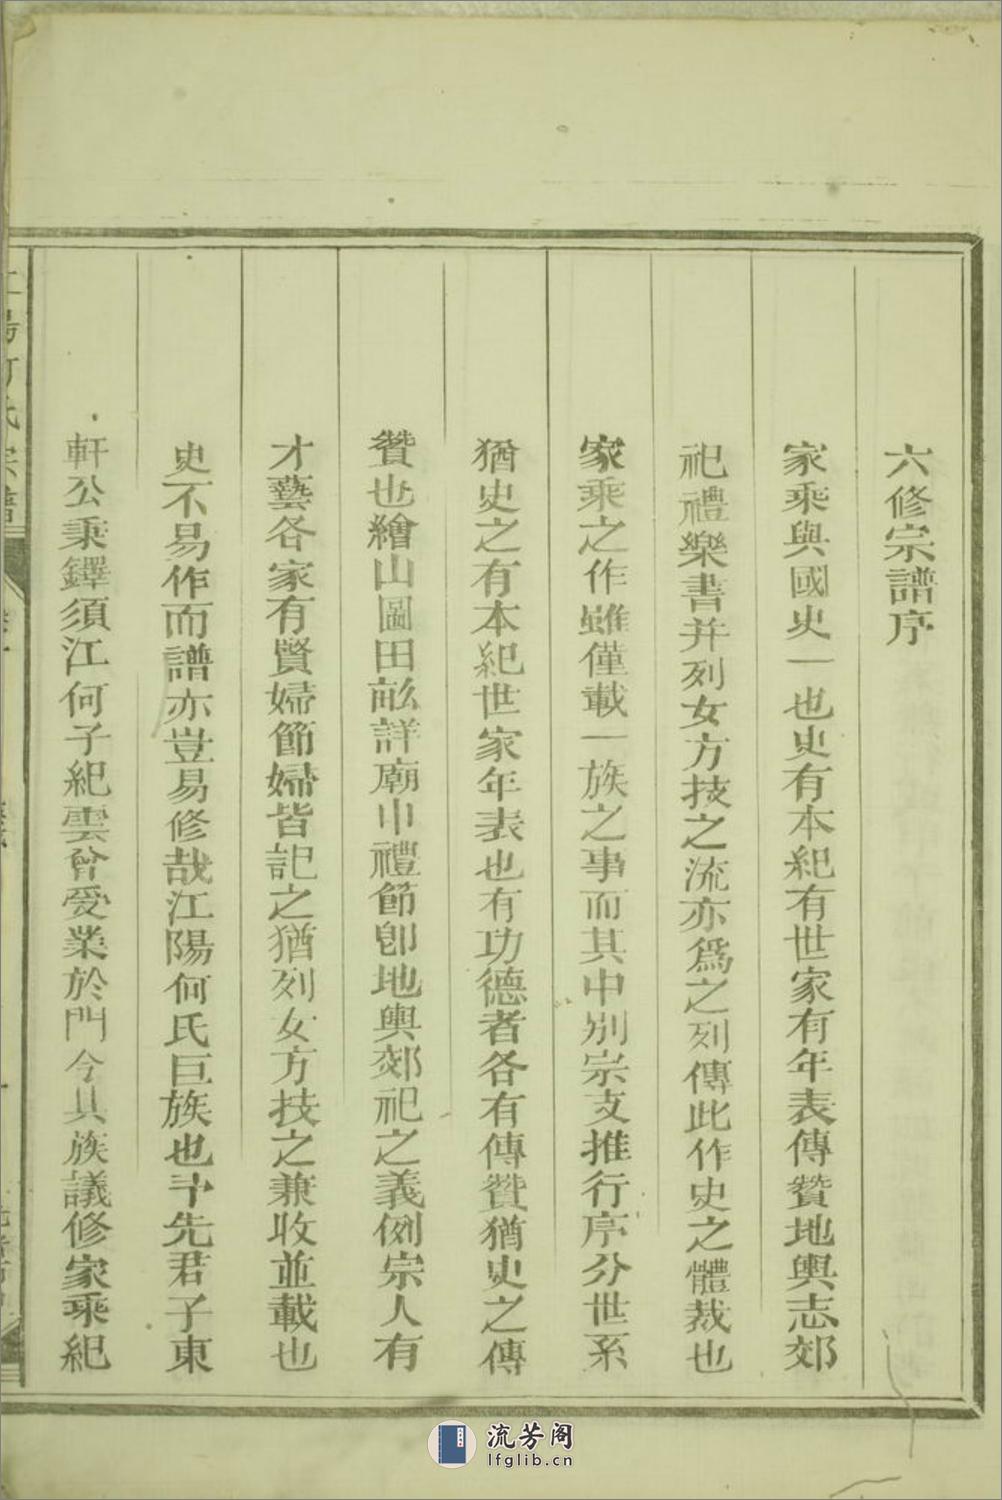 六修宗譜序
家乘與國史一也史有本紀有世家有年表傳贊地輿志郊
祀禮樂書并列女方技之流亦爲之列傳此作史之體裁也
家乘之作雖僅載一族之事而其中別宗支推行序分世系
猶史之有本紀世家年表也有功德者各有傳贊猶史之傳
贊也繪山圖田畝詳廟巾禮節卽地輿郊祀之義例宗人有
才藝各家有賢婦節婦皆記之猶列女方技之兼收並載也
史不易作而譜亦豈易修哉江陽何氏巨族也予先君子東
軒公秉鐸須江何子紀雲曾受業於門今其族議修家乘紀
宗譜
流芳阁
lfglib.cn